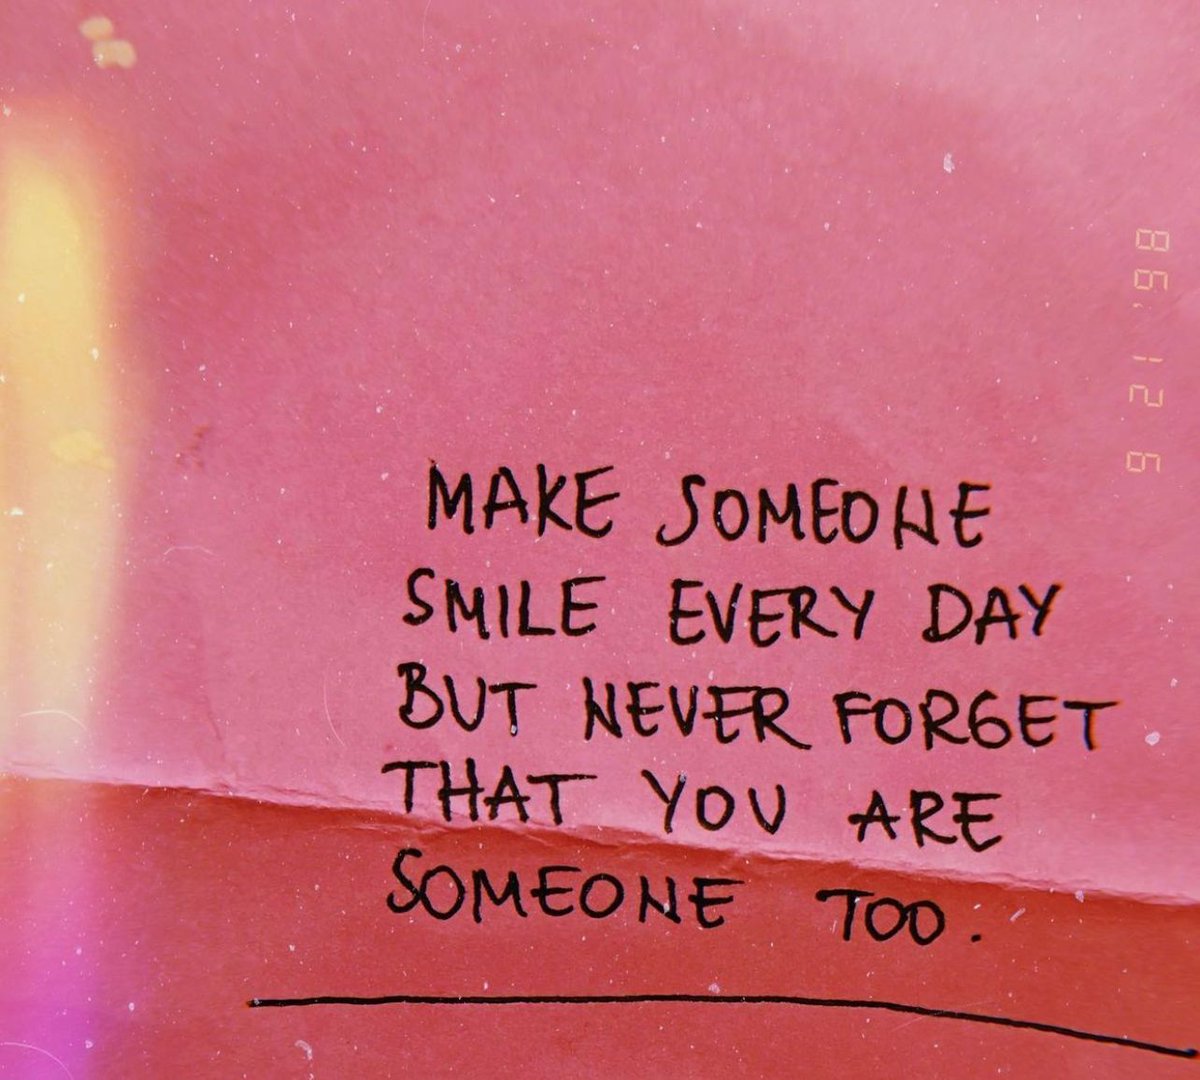 MAKE SOMEONE
SMILE EVERY DAY
BUT NEVER FORGET
THAT YOU ARE
SOMEONE TOO.
9 21 '98